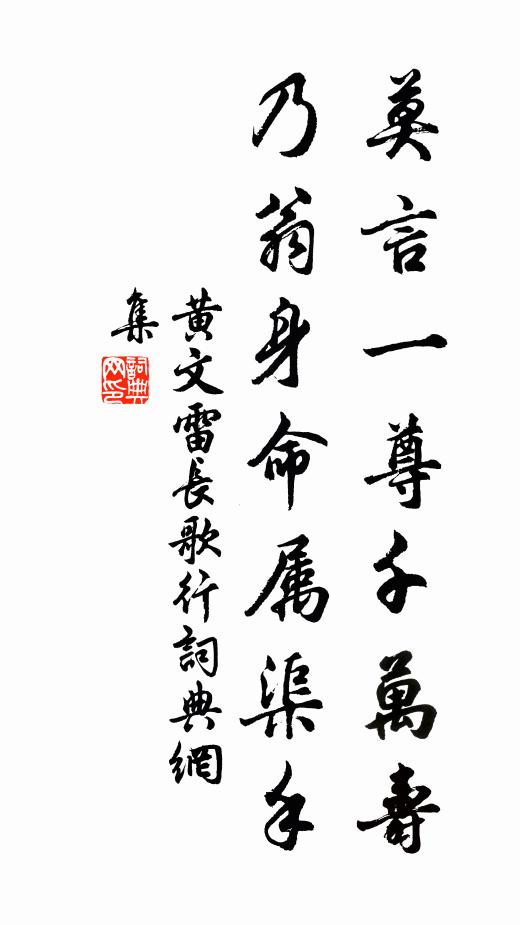 莫言一尊千萬壽
乃翁身命属渠手
黄文雷長歌行詞典網
集
詞典網印